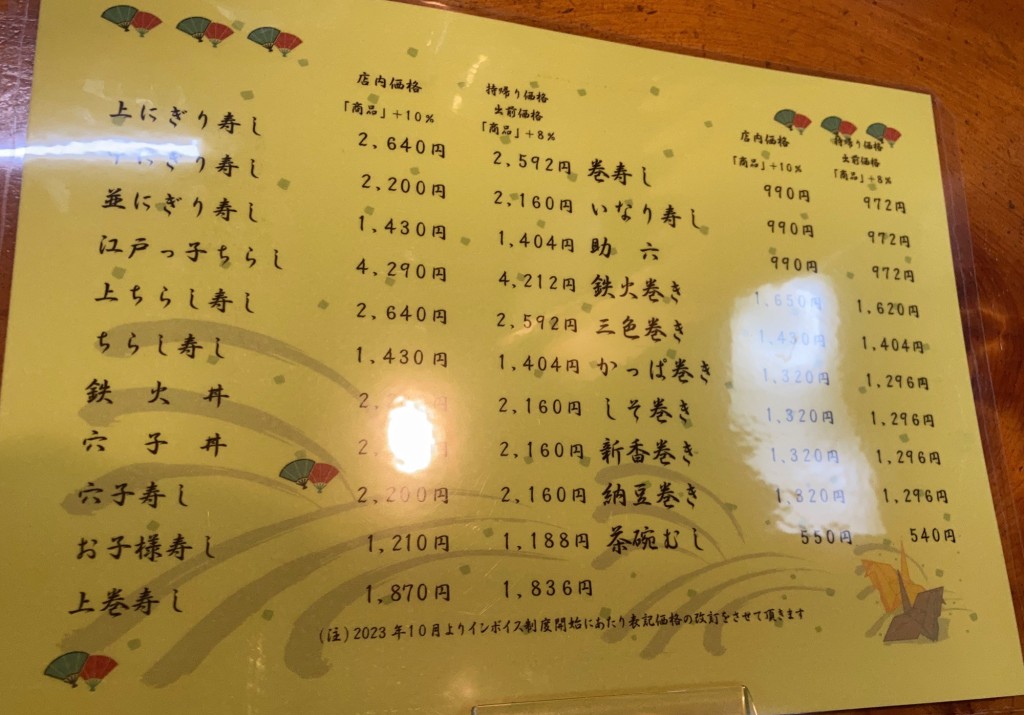 店内価格 持帰り価格
出前価格
「商品」+10% 「商品」+8%
上にぎり寿し 2,640円 2,592円
にぎり寿し 2,200円 2,160円
並にぎり寿し 1,430円 1,404円
江戸っ子ちらし 4,290円 4,212円
上ちらし寿し 2,640円 2,592円
ちらし寿し 1,430円 1,404円
鉄火丼 2,160円
穴子丼 2,160円
穴子寿し 2,200円 2,160円
お子様寿し 1,210円 1,188円
上巻寿し 1,870円 1,836円
店内価格 持帰り価格
出前価格
「商品」+10% 「商品」+8%
巻寿し 990円 972円
いなり寿し 990円 972円
助六 990円 972円
鉄火巻き 1,650円 1,620円
三色巻き 1,430円 1,404円
かっぱ巻き 1,320円 1,296円
しそ巻き 1,320円 1,296円
新香巻き 1,320円 1,296円
納豆巻き 1,320円 1,296円
茶碗むし 550円 540円
(注)2023年10月よりインボイス制度開始にあたり表記価格の改訂をさせて頂きます